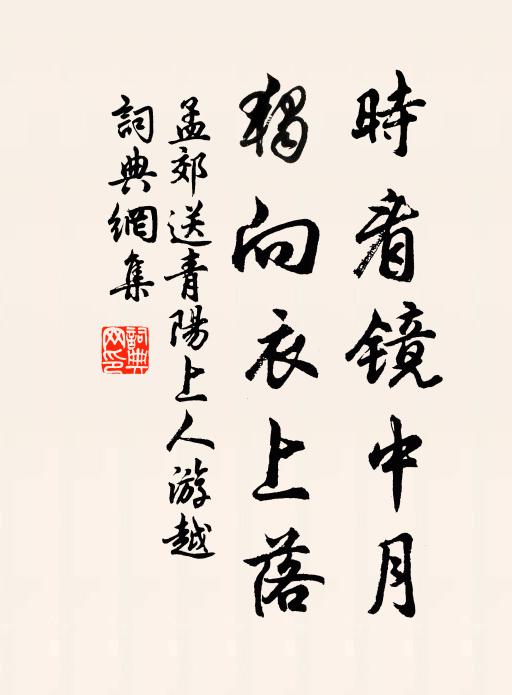 時看鏡中月
獨向衣上落
孟郊送青陽上人游越
詞典網集
詞典網印